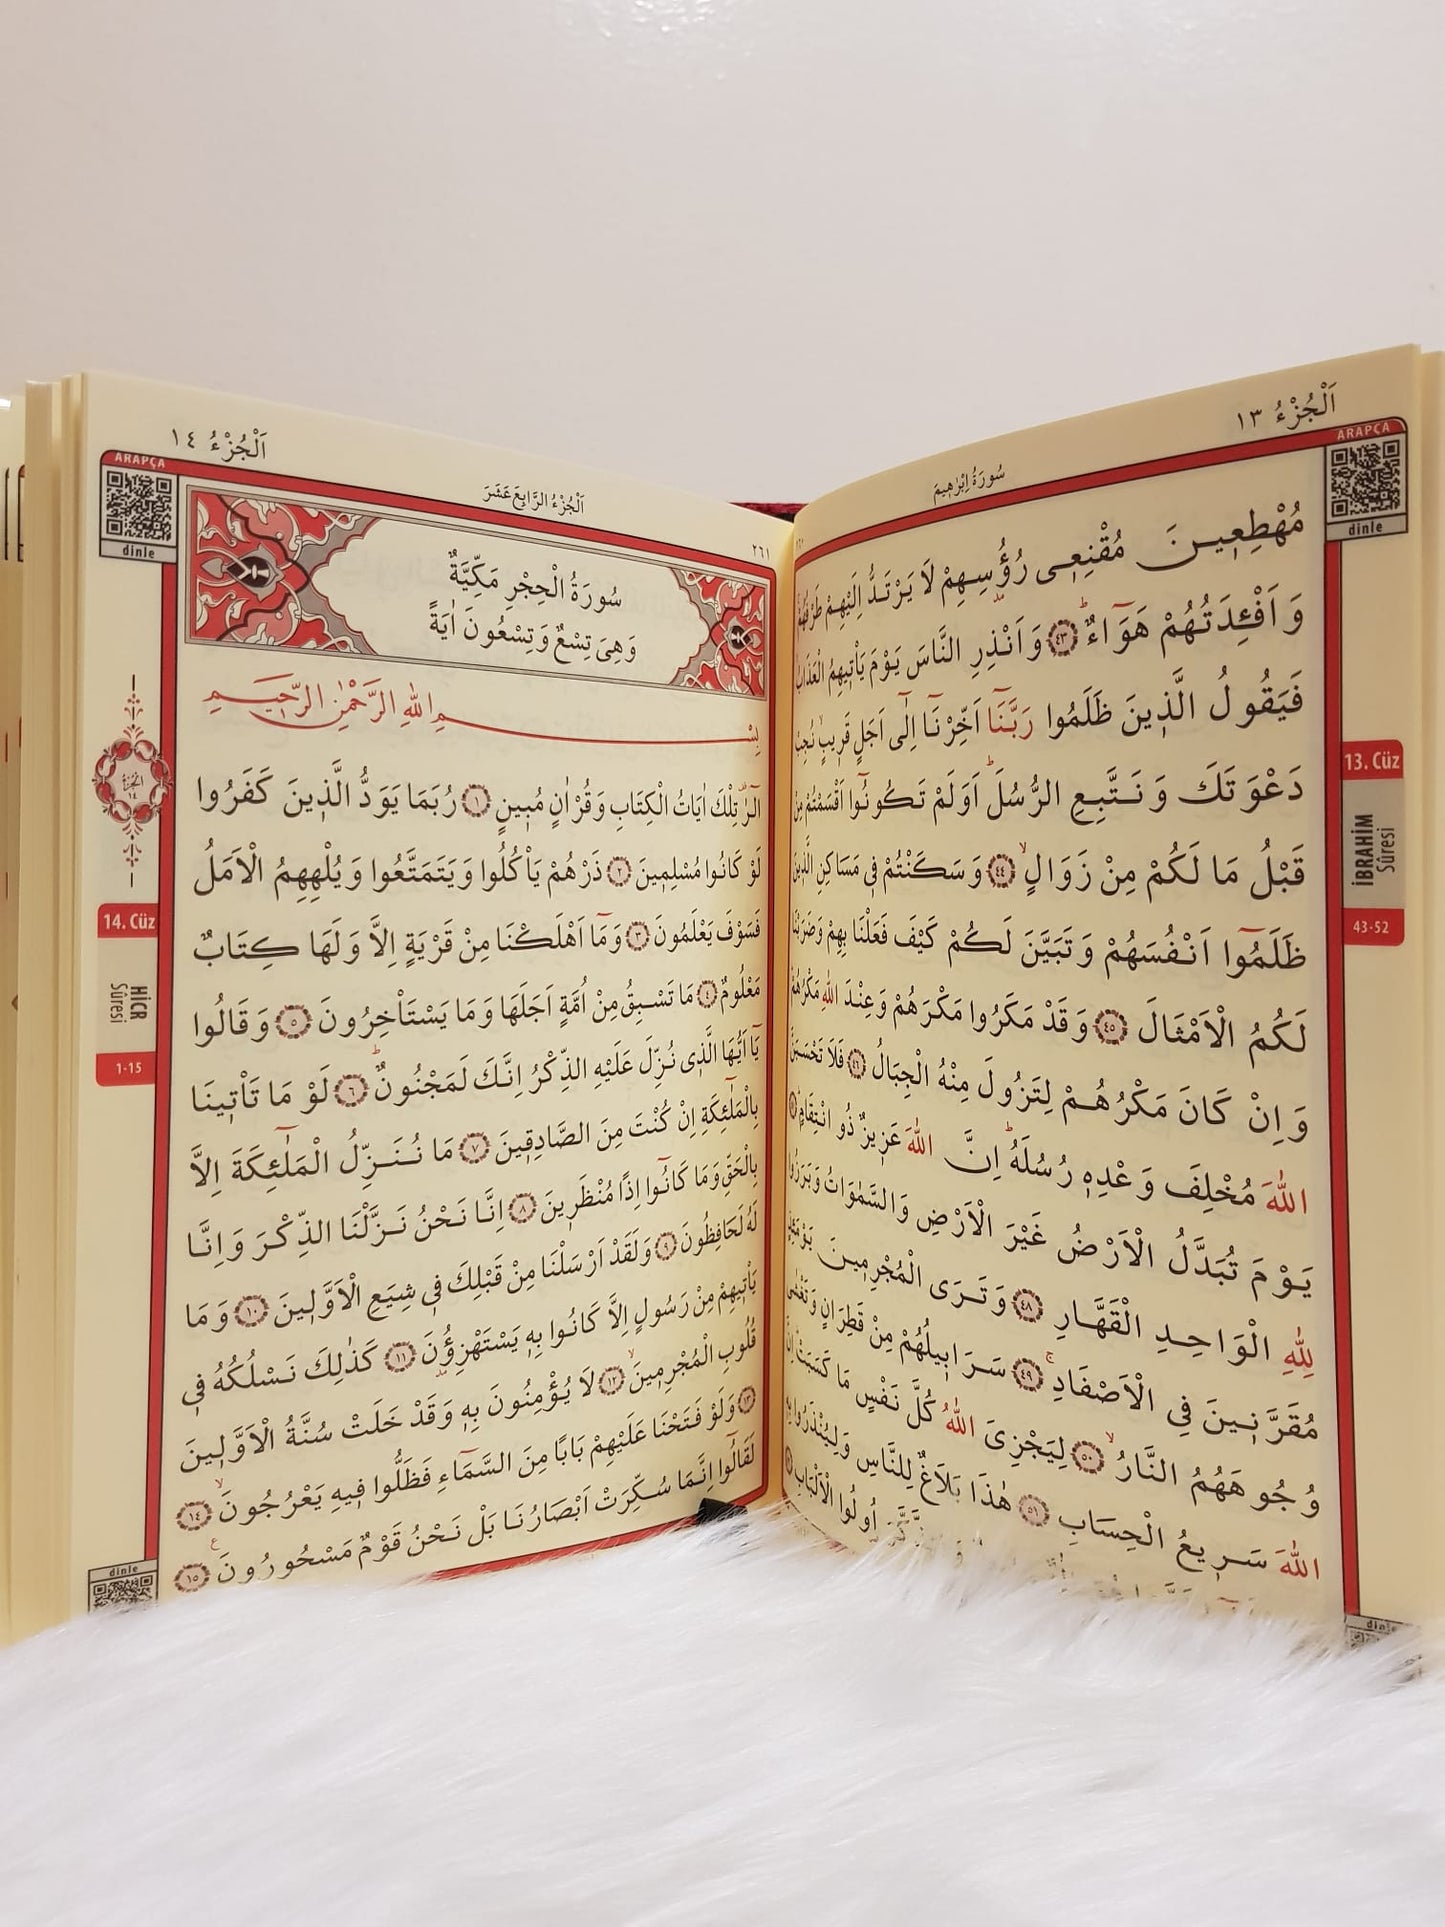 اَلْجُزْءُ ١٣
سُورَةُ اِبْرٰه۪يمَ
ARAPÇA
dinle
مُهْطِع۪ينَ مُقْنِع۪ى رُؤُسِهِمْ لَا يَرْتَدُّ اِلَيْهِمْ طَرْفُهُمْ
وَاَفْـِٔدَتُهُمْ هَوَٓاءٌ ﴿٤٣﴾ وَاَنْذِرِ النَّاسَ يَوْمَ يَاْت۪يهِمُ الْعَذَابُ
فَيَقُولُ الَّذ۪ينَ ظَلَمُوا رَبَّنَٓا اَخِّرْنَٓا اِلٰٓى اَجَلٍ قَر۪يبٍ نُجِبْ
دَعْوَتَكَ وَنَتَّبِعِ الرُّسُلَ اَوَلَمْ تَكُونُٓوا اَقْسَمْتُمْ مِنْ
قَبْلُ مَا لَكُمْ مِنْ زَوَالٍ ﴿٤٤﴾ وَسَكَنْتُمْ ف۪ى مَسَاكِنِ الَّذ۪ينَ
ظَلَمُٓوا اَنْفُسَهُمْ وَتَبَيَّنَ لَكُمْ كَيْفَ فَعَلْنَا بِهِمْ وَضَرَبْنَا
لَكُمُ الْاَمْثَالَ ﴿٤٥﴾ وَقَدْ مَكَرُوا مَكْرَهُمْ وَعِنْدَ اللّٰهِ مَكْرُهُمْ
وَاِنْ كَانَ مَكْرُهُمْ لِتَزُولَ مِنْهُ الْجِبَالُ ﴿٤٦﴾ فَلَا تَحْسَبَنَّ
اللّٰهَ مُخْلِفَ وَعْدِه۪ رُسُلَهُ اِنَّ اللّٰهَ عَز۪يزٌ ذُو انْتِقَامٍ
يَوْمَ تُبَدَّلُ الْاَرْضُ غَيْرَ الْاَرْضِ وَالسَّمٰوَاتُ وَبَرَزُوا
لِلّٰهِ الْوَاحِدِ الْقَهَّارِ ﴿٤٨﴾ وَتَرَى الْمُجْرِم۪ينَ يَوْمَئِذٍ
مُقَرَّن۪ينَ فِي الْاَصْفَادِ ﴿٤٩﴾ سَرَاب۪يلُهُمْ مِنْ قَطِرَانٍ وَتَغْشٰى
وُجُوهَهُمُ النَّارُ ﴿٥٠﴾ لِيَجْزِىَ اللّٰهُ كُلَّ نَفْسٍ مَا كَسَبَتْ اِنَّ
اللّٰهَ سَر۪يعُ الْحِسَابِ ﴿٥١﴾ هٰذَا بَلَاغٌ لِلنَّاسِ وَلِيُنْذَرُوا بِه۪
اُولُوا الْاَلْبَابِ
13. Cüz
İBRAHİM
Sûresi
43-52
dinle
اَلْجُزْءُ ١٤
اَلْجُزْءُ الرَّابِعَ عَشَرَ
٢٦١
ARAPÇA
dinle
سُورَةُ الْحِجْرِ مَكِّيَّةٌ
وَهِىَ تِسْعٌ وَتِسْعُونَ اٰيَةً
بِسْمِ اللّٰهِ الرَّحْمٰنِ الرَّح۪يمِ
الٓرٰ تِلْكَ اٰيَاتُ الْكِتَابِ وَقُرْاٰنٍ مُب۪ينٍ ﴿١﴾ رُبَمَا يَوَدُّ الَّذ۪ينَ كَفَرُوا
لَوْ كَانُوا مُسْلِم۪ينَ ﴿٢﴾ ذَرْهُمْ يَاْكُلُوا وَيَتَمَتَّعُوا وَيُلْهِهِمُ الْاَمَلُ
فَسَوْفَ يَعْلَمُونَ ﴿٣﴾ وَمَٓا اَهْلَكْنَا مِنْ قَرْيَةٍ اِلَّا وَلَهَا كِتَابٌ
مَعْلُومٌ ﴿٤﴾ مَا تَسْبِقُ مِنْ اُمَّةٍ اَجَلَهَا وَمَا يَسْتَاْخِرُونَ ﴿٥﴾ وَقَالُوا
يَٓا اَيُّهَا الَّذ۪ى نُزِّلَ عَلَيْهِ الذِّكْرُ اِنَّكَ لَمَجْنُونٌ ﴿٦﴾ لَوْ مَا تَاْت۪ينَا
بِالْمَلٰٓئِكَةِ اِنْ كُنْتَ مِنَ الصَّادِق۪ينَ ﴿٧﴾ مَا نُنَزِّلُ الْمَلٰٓئِكَةَ اِلَّا
بِالْحَقِّ وَمَا كَانُٓوا اِذًا مُنْظَر۪ينَ ﴿٨﴾ اِنَّا نَحْنُ نَزَّلْنَا الذِّكْرَ وَاِنَّا
لَهُ لَحَافِظُونَ ﴿٩﴾ وَلَقَدْ اَرْسَلْنَا مِنْ قَبْلِكَ ف۪ى شِيَعِ الْاَوَّل۪ينَ ﴿١٠﴾ وَمَا
يَاْت۪يهِمْ مِنْ رَسُولٍ اِلَّا كَانُوا بِه۪ يَسْتَهْزِؤُنَ ﴿١١﴾ كَذٰلِكَ نَسْلُكُهُ ف۪ى
قُلُوبِ الْمُجْرِم۪ينَ ﴿١٢﴾ لَا يُؤْمِنُونَ بِه۪ وَقَدْ خَلَتْ سُنَّةُ الْاَوَّل۪ينَ
﴿١٣﴾ وَلَوْ فَتَحْنَا عَلَيْهِمْ بَابًا مِنَ السَّمَٓاءِ فَظَلُّوا ف۪يهِ يَعْرُجُونَ ﴿١٤﴾
لَقَالُٓوا اِنَّمَا سُكِّرَتْ اَبْصَارُنَا بَلْ نَحْنُ قَوْمٌ مَسْحُورُونَ ﴿١٥﴾
اَلْجُزْءُ
١٤
14. Cüz
HİCR
Sûresi
1-15
dinle